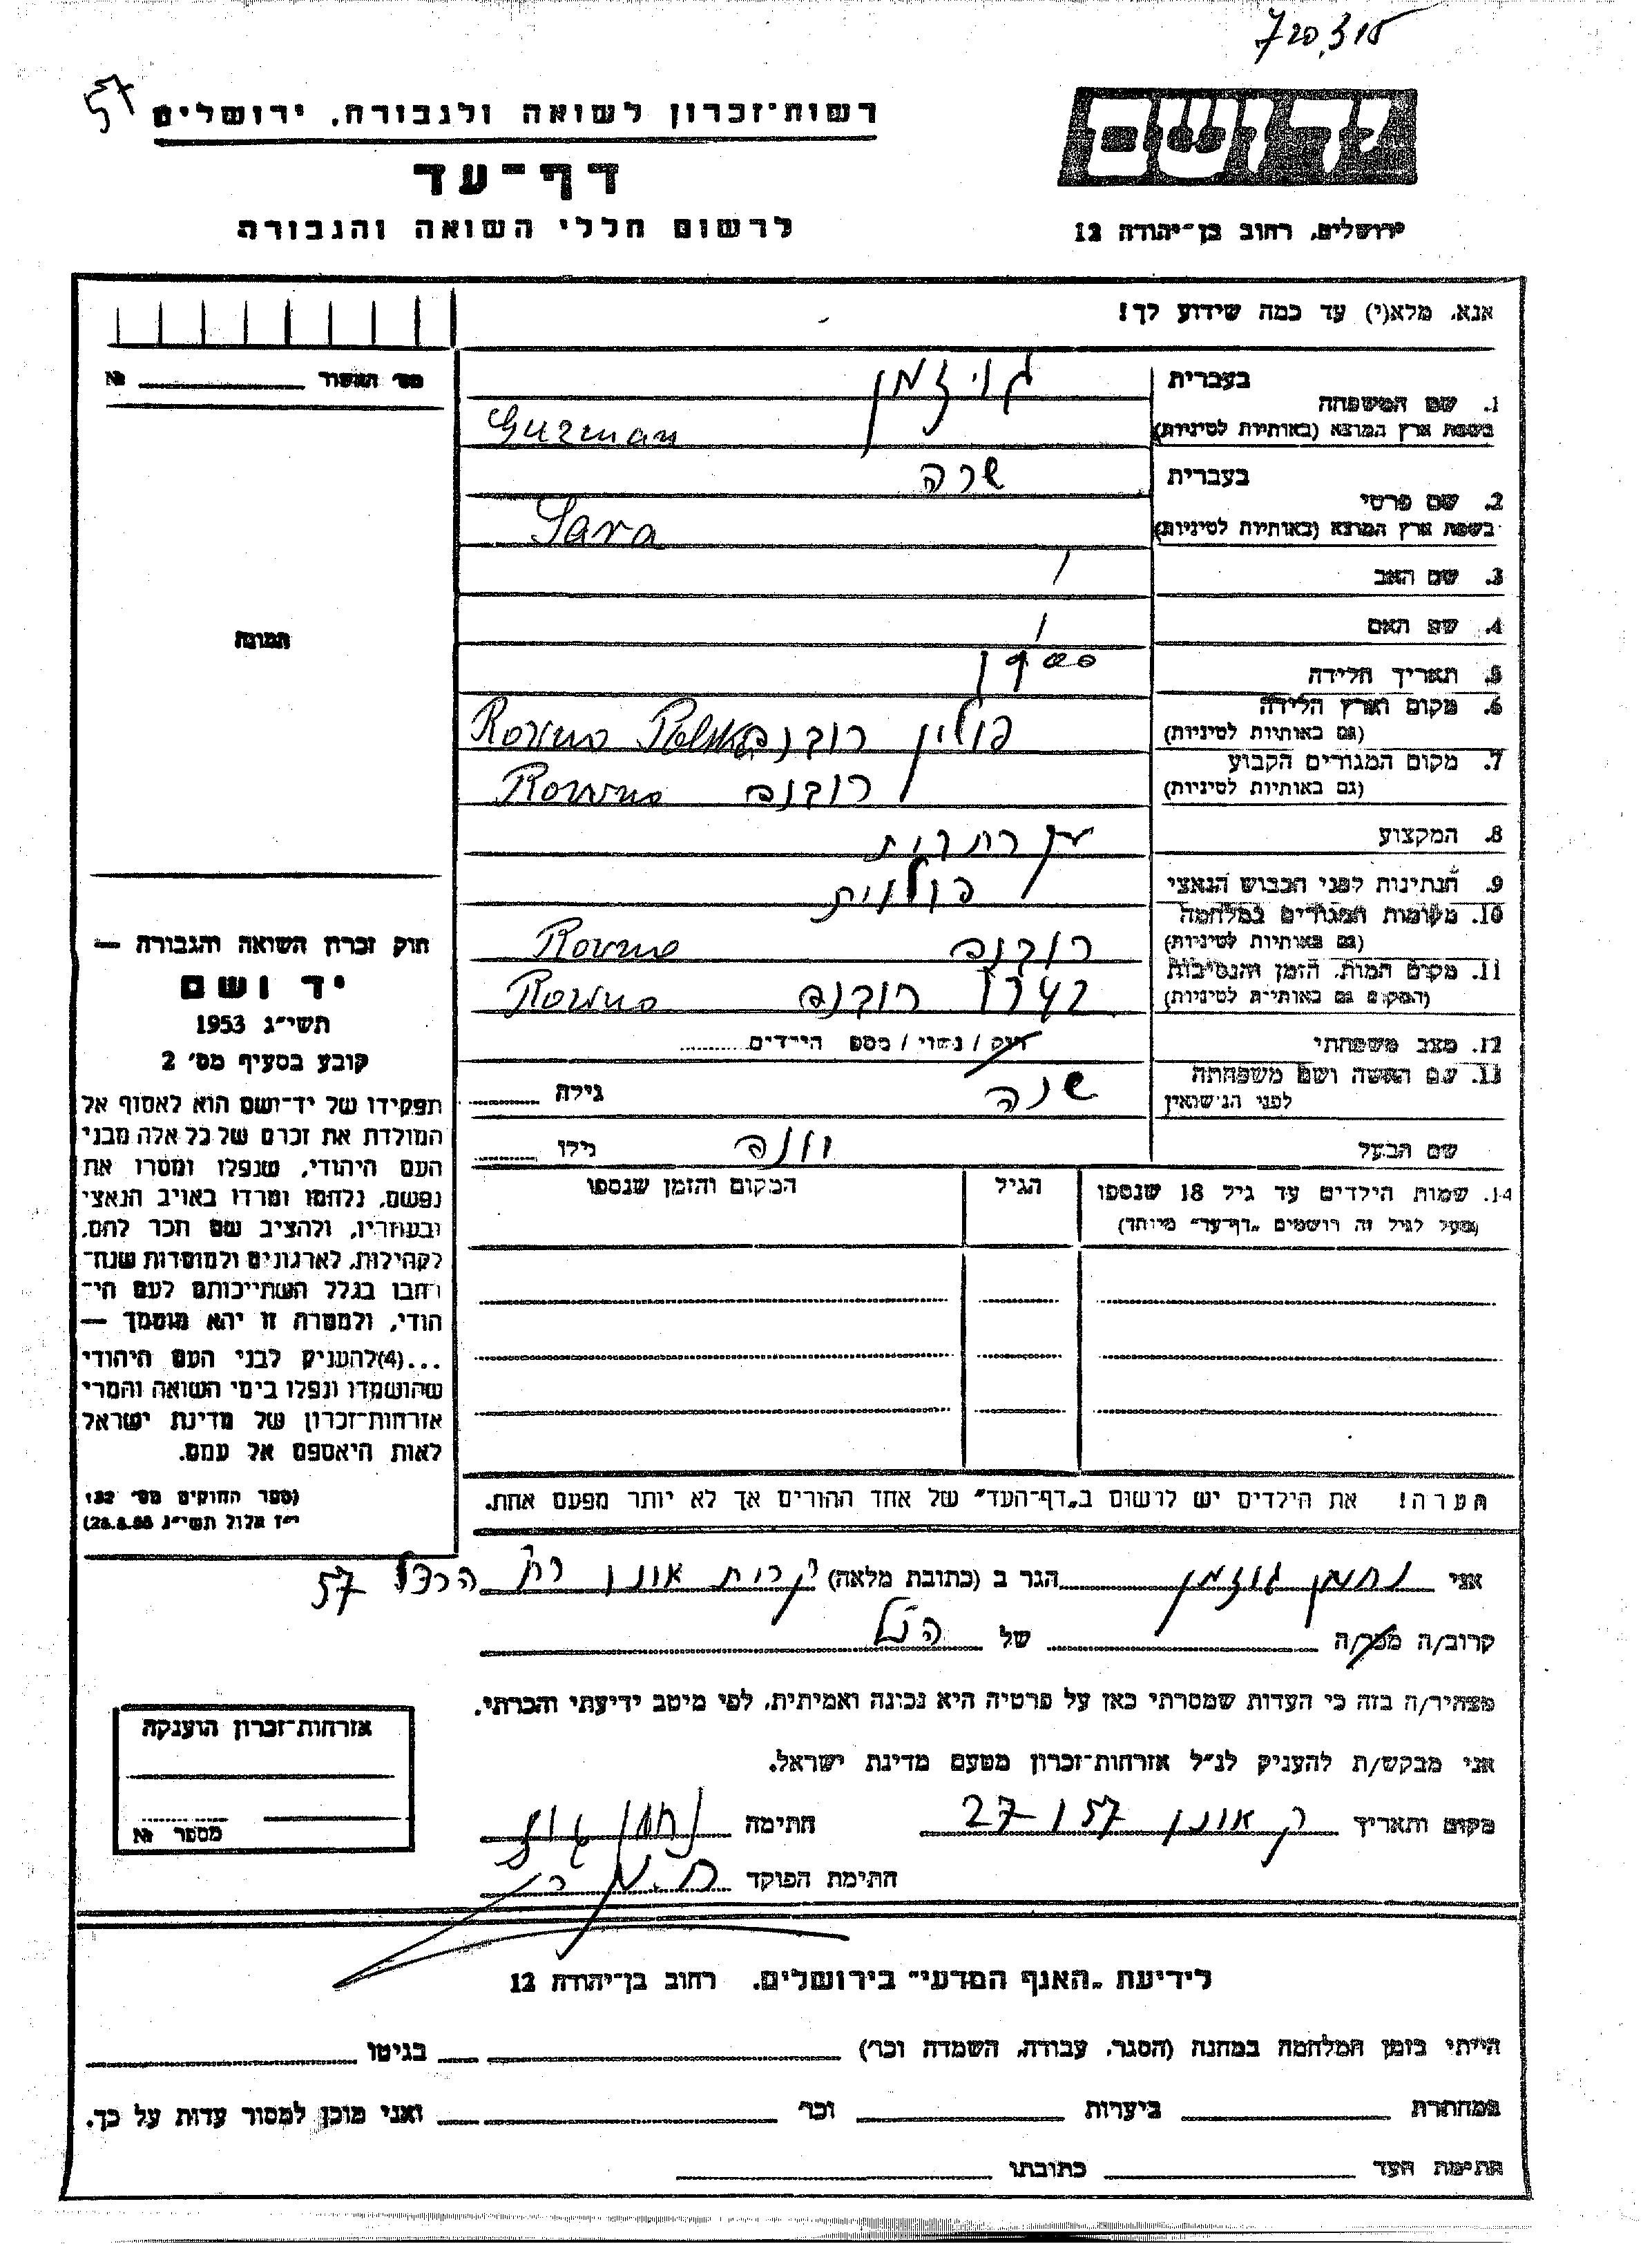 57
רשות־זכרון לשואה ולגבורה, ירושלים
דף־עד
לרשום חללי השואה והגבורה
יד ושם
ירושלים, רחוב בן־יהודה 12
אנא, מלא(י) עד כמה שידוע לך!
מס׳ האשור № 
1. שם המשפחה בעברית גויזמן
בשפת ארץ המוצא (באותיות לטיניות) Guzman
2. שם פרטי בעברית שרה
בשפת ארץ המוצא (באותיות לטיניות) Sara
3. שם האב /
4. שם האם /
תמונה
5. תאריך הלידה
6. מקום וארץ הלידה (גם באותיות לטיניות) פולין רובנה Rovno Polska
7. מקום המגורים הקבוע (גם באותיות לטיניות) רובנה Rowno
8. המקצוע
9. הנתינות לפני הכבוש הנאצי פולנית
10. מקומות המגורים במלחמה (גם באותיות לטיניות) רובנה Rovno
11. מקום המות, הזמן והנסיבות (המקום גם באותיות לטיניות) רובנה Rowno
12. מצב משפחתי רווק / נשוי / מספ הילדים
13. שם האשה ושם משפחתה לפני הנישואין שרה גילה
שם הבעל גילו
14. שמות הילדים עד גיל 18 שנספו הגיל המקום והזמן שנספו
(מעל לגיל זה רושמים „דף־עד״ מיוחד)
הערה! את הילדים יש לרשום ב„דף־העד״ של אחד ההורים אך לא יותר מפעם אחת.
חוק זכרון השואה והגבורה —
יד ושם
תשי״ג 1953
קובע בסעיף מס׳ 2
תפקידו של יד־ושם הוא לאסוף אל
המולדת את זכרם של כל אלה מבני
העם היהודי, שנפלו ומסרו את
נפשם, נלחמו ומרדו באויב הנאצי
ובעוזריו, ולהציב שם וזכר להם,
לקהילות, לארגונים ולמוסדות שנח־
רבו בגלל השתייכותם לעם הי־
הודי, ולמטרה זו יהא מוסמך —
...(4)להעניק לבני העם היהודי
שהושמדו ונפלו בימי השואה והמרי
אזרחות־זכרון של מדינת ישראל
לאות היאספם אל עמם.
(ספר החוקים מס׳ 132
י״ז אלול תשי״ג 28.8.53)
אני נחמן גוזמן הגר ב (כתובת מלאה) קרית אונו רח׳ הרצל 57
קרוב/ה מכר/ה של הנ״ל
מצהיר/ה בזה כי העדות שמסרתי כאן על פרטיה היא נכונה ואמיתית, לפי מיטב ידיעתי והכרתי.
אני מבקש/ת להעניק לנ״ל אזרחות־זכרון מטעם מדינת ישראל.
מקום ותאריך ק אונו 27-1 57 חתימה
חתימת הפוקד
אזרחות־זכרון הוענקה
מספר №
לידיעת „האגף המדעי״ בירושלים, רחוב בן־יהודה 12
הייתי בזמן המלחמה במחנה (הסגר, עבודה, השמדה וכו׳) בגיטו
במחתרת ביערות וכו׳ ואני מוכן למסור עדות על כך.
חתימת העד כתובתו